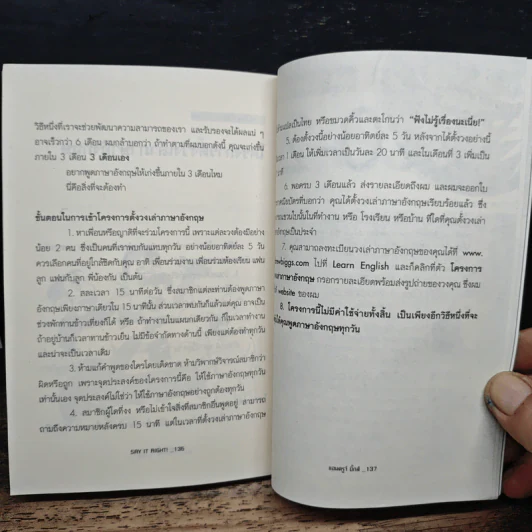 วิธีหนึ่งที่เราจะช่วยพัฒนาความสามารถของเรา และรับรองจะได้ผลแน่ ๆ
อาจเร็วกว่า 6 เดือน ผมกล้าบอกว่า ถ้าทำตามที่ผมบอกดังนี้ คุณจะเก่งขึ้น
ภายใน 3 เดือน 3 เดือนเอง
อยากพูดภาษาอังกฤษให้เก่งขึ้นภายใน 3 เดือนไหม
นี่คือสิ่งที่จะต้องทำ
ขั้นตอนในการเข้าโครงการตั้งวงเล่าภาษาอังกฤษ
1. หาเพื่อนหรือญาติที่จะร่วมโครงการนี้ เพราะแต่ละวงต้องมีอย่าง
น้อย 2 คน ซึ่งเป็นคนที่เราพบกันแทบทุกวัน อย่างน้อยอาทิตย์ละ 5 วัน
ควรเลือกคนที่อยู่ใกล้ชิดกับคุณ อาทิ เพื่อนร่วมงาน เพื่อนร่วมห้องเรียน แฟน
ลูก แฟนกับลูก พี่น้องกัน เป็นต้น
2. สละเวลา 15 นาทีต่อวัน ซึ่งสมาชิกแต่ละท่านต้องพูดภาษา
อังกฤษเพียงภาษาเดียวใน 15 นาทีนั้น ส่วนเวลาพบกันก็แล้วแต่คุณ อาจเป็น
ช่วงพักทานข้าวเที่ยงก็ได้ หรือ ถ้าทำงานในแผนกเดียวกัน ก็ในเวลาทำงาน
ถ้าอยู่บ้านก็เวลาทานข้าวเย็น ไม่มีข้อจำกัดทางด้านนี้ เพียงแต่ต้องทำทุกวัน
และน่าจะเป็นเวลาเดิม
3. ห้ามแก้คำพูดของใครโดยเด็ดขาด ห้ามวิพากษ์วิจารณ์สมาชิกว่า
ผิดหรือถูก เพราะจุดประสงค์ของโครงการนี้คือ ให้ใช้ภาษาอังกฤษทุกวัน
เท่านั้นเอง จุดประสงค์ไม่ใช่ว่า ให้ใช้ภาษาอังกฤษอย่างถูกต้องทุกวัน
4. สมาชิกผู้ใดที่งง หรือไม่เข้าใจสิ่งที่สมาชิกอื่นพูดอยู่ สามารถ
ถามถึงความหมายหลังครบ 15 นาที แต่ในเวลาที่ตั้งวงเล่าภาษาอังกฤษ
SAY IT RIGHT! _136
เป็นไทย หรือขมวดคิ้วและตะโกนว่า "ฟังไม่รู้เรื่องนะเนี่ย!"
5. ต้องตั้งวงนี้อย่างน้อยอาทิตย์ละ 5 วัน หลังจากได้ตั้งวงอย่างนี้
1 เดือน ให้เพิ่มเวลาเป็นวันละ 20 นาที และในเดือนที่ 3 เพิ่มเป็น
นาที
6. พอครบ 3 เดือนแล้ว ส่งรายละเอียดถึงผม และผมจะออกใบ
บัตรที่บอกว่า คุณได้ตั้งวงเล่าภาษาอังกฤษเรียบร้อยแล้ว ซึ่ง
แขวนใบนั้นในที่ทำงาน หรือ โรงเรียน หรือบ้าน ที่ใดที่คุณตั้งวงเล่า
อังกฤษเป็นประจำ
7. คุณสามารถลงทะเบียนวงเล่าภาษาอังกฤษของคุณได้ที่ www.
biggs.com ไปที่ Learn English และก็คลิกที่ตัว โครงการ
ภาษาอังกฤษ กรอกรายละเอียดพร้อมส่งรูปถ่ายของวงคุณ ซึ่งผม
website ของผม
8. โครงการนี้ไม่มีค่าใช้จ่ายทั้งสิ้น เป็นเพียงอีกวิธีหนึ่งที่จะ
ให้คุณพูดภาษาอังกฤษทุกวัน
แอนดรูว์ บิ๊กส์ _137